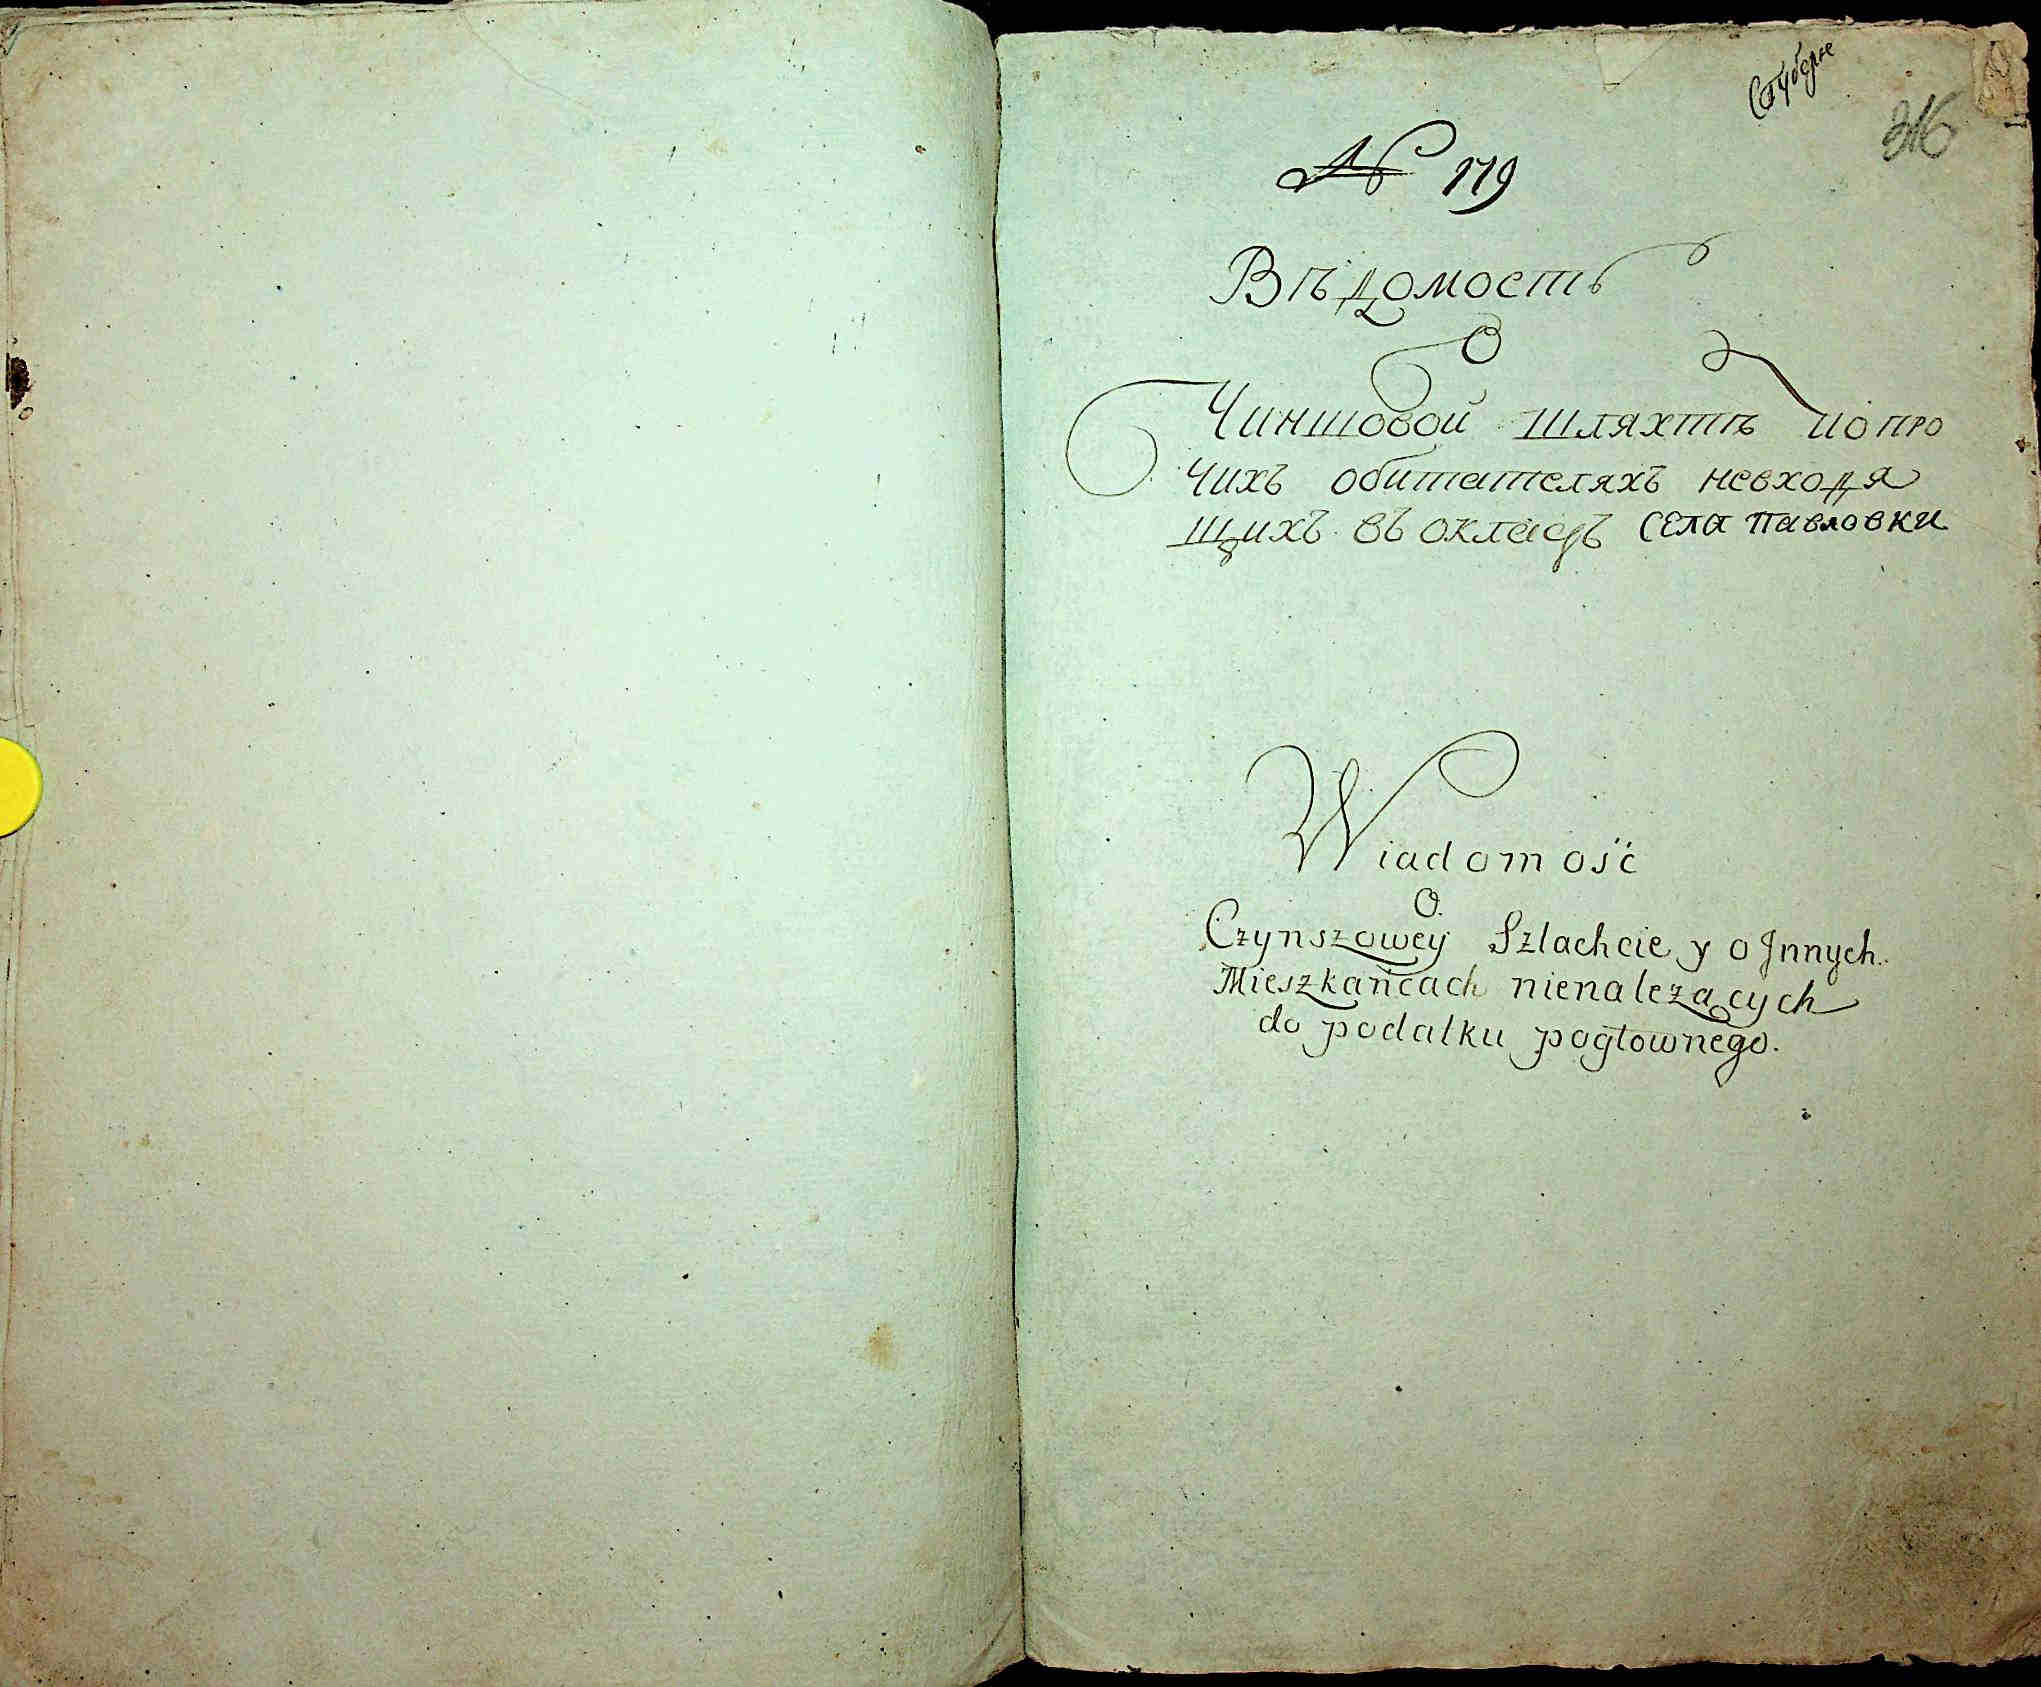 316
№ 179
Вѣдомость
О
Чиншовой шляхтѣ ио про
чихъ обитателяхъ невходя
щихъ въ окладъ села павловки
Wiadomość
O.
Czynszowey Szlachcie y o Jnnych.
Mieszkańcach nienależących
do podatku pogłownego.